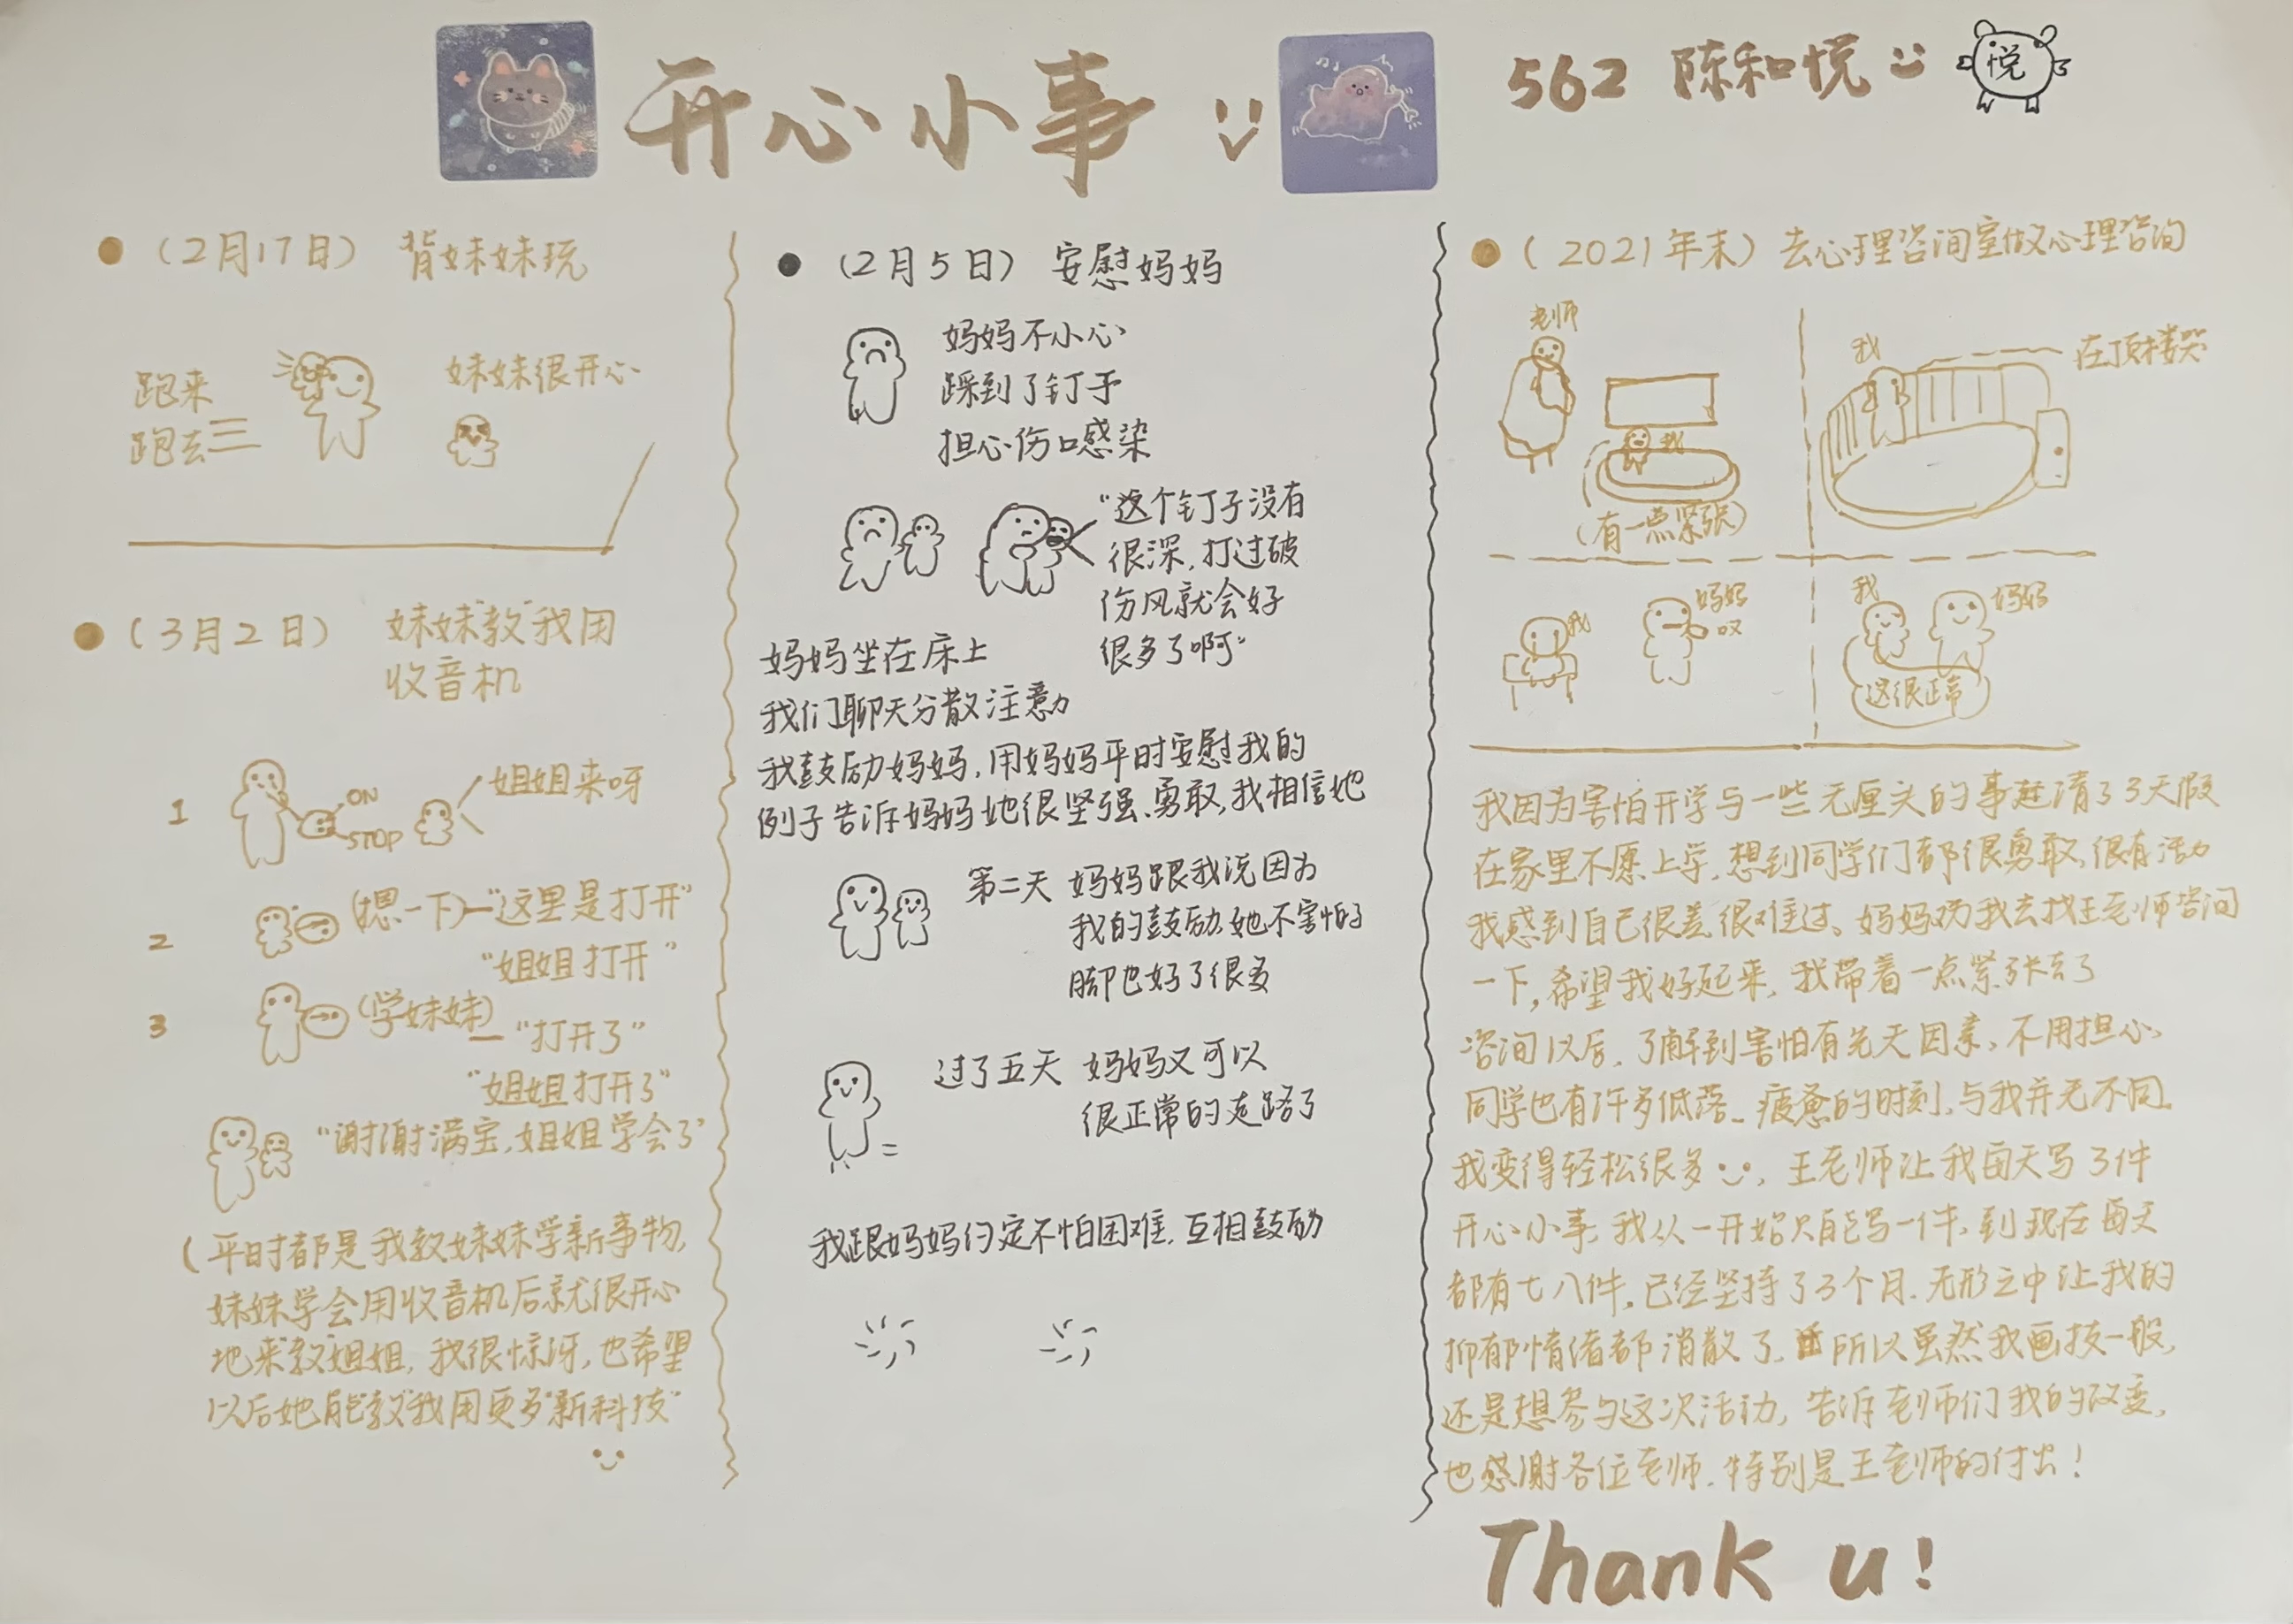 开心小事
562 陈和悦
悦
(2月17日) 背妹妹玩
跑来
跑去
妹妹很开心
(3月2日) 妹妹"教"我用
收音机
1
ON
STOP
姐姐来呀
2
(摁一下)—"这里是打开"
"姐姐打开"
3
(学妹妹)
—"打开了"
"姐姐打开了"
"谢谢满宝,姐姐学会了"
(平时都是我教妹妹学新事物,
妹妹学会用收音机后就很开心
地来"教"姐姐,我很惊讶,也希望
以后她能"教"我用更多"新科技"
(2月5日) 安慰妈妈
妈妈不小心
踩到了钉子
担心伤口感染
"这个钉子没有
很深,打过破
伤风就会好
很多了啊"
妈妈坐在床上
我们聊天分散注意力
我鼓励妈妈,用妈妈平时安慰我的
例子告诉妈妈她很坚强、勇敢,我相信她
第二天 妈妈跟我说因为
我的鼓励她不害怕了
脚也好了很多
过了五天 妈妈又可以
很正常的走路了
我跟妈妈约定不怕困难,互相鼓励
(2021年末) 去心理咨询室做心理咨询
老师
我
(有一点紧张)
我
在顶楼哭
我
妈妈
叹
我
妈妈
这很正常
我因为害怕开学与一些无厘头的事连请了3天假
在家里不愿上学,想到同学们都很勇敢,很有活力
我感到自己很差很难过。妈妈劝我去找王老师咨询
一下,希望我好起来,我带着一点紧张去了
咨询以后,了解到害怕有先天因素,不用担心,
同学也有许多低落、疲惫的时刻,与我并无不同。
我变得轻松很多,王老师让我每天写3件
开心小事,我从一开始只能写一件,到现在每天
都有七八件,已经坚持了3个月.无形之中让我的
抑郁情绪都消散了.所以虽然我画技一般,
还是想参与这次活动,告诉老师们我的改变,
也感谢各位老师.特别是王老师的付出!
Thank u!